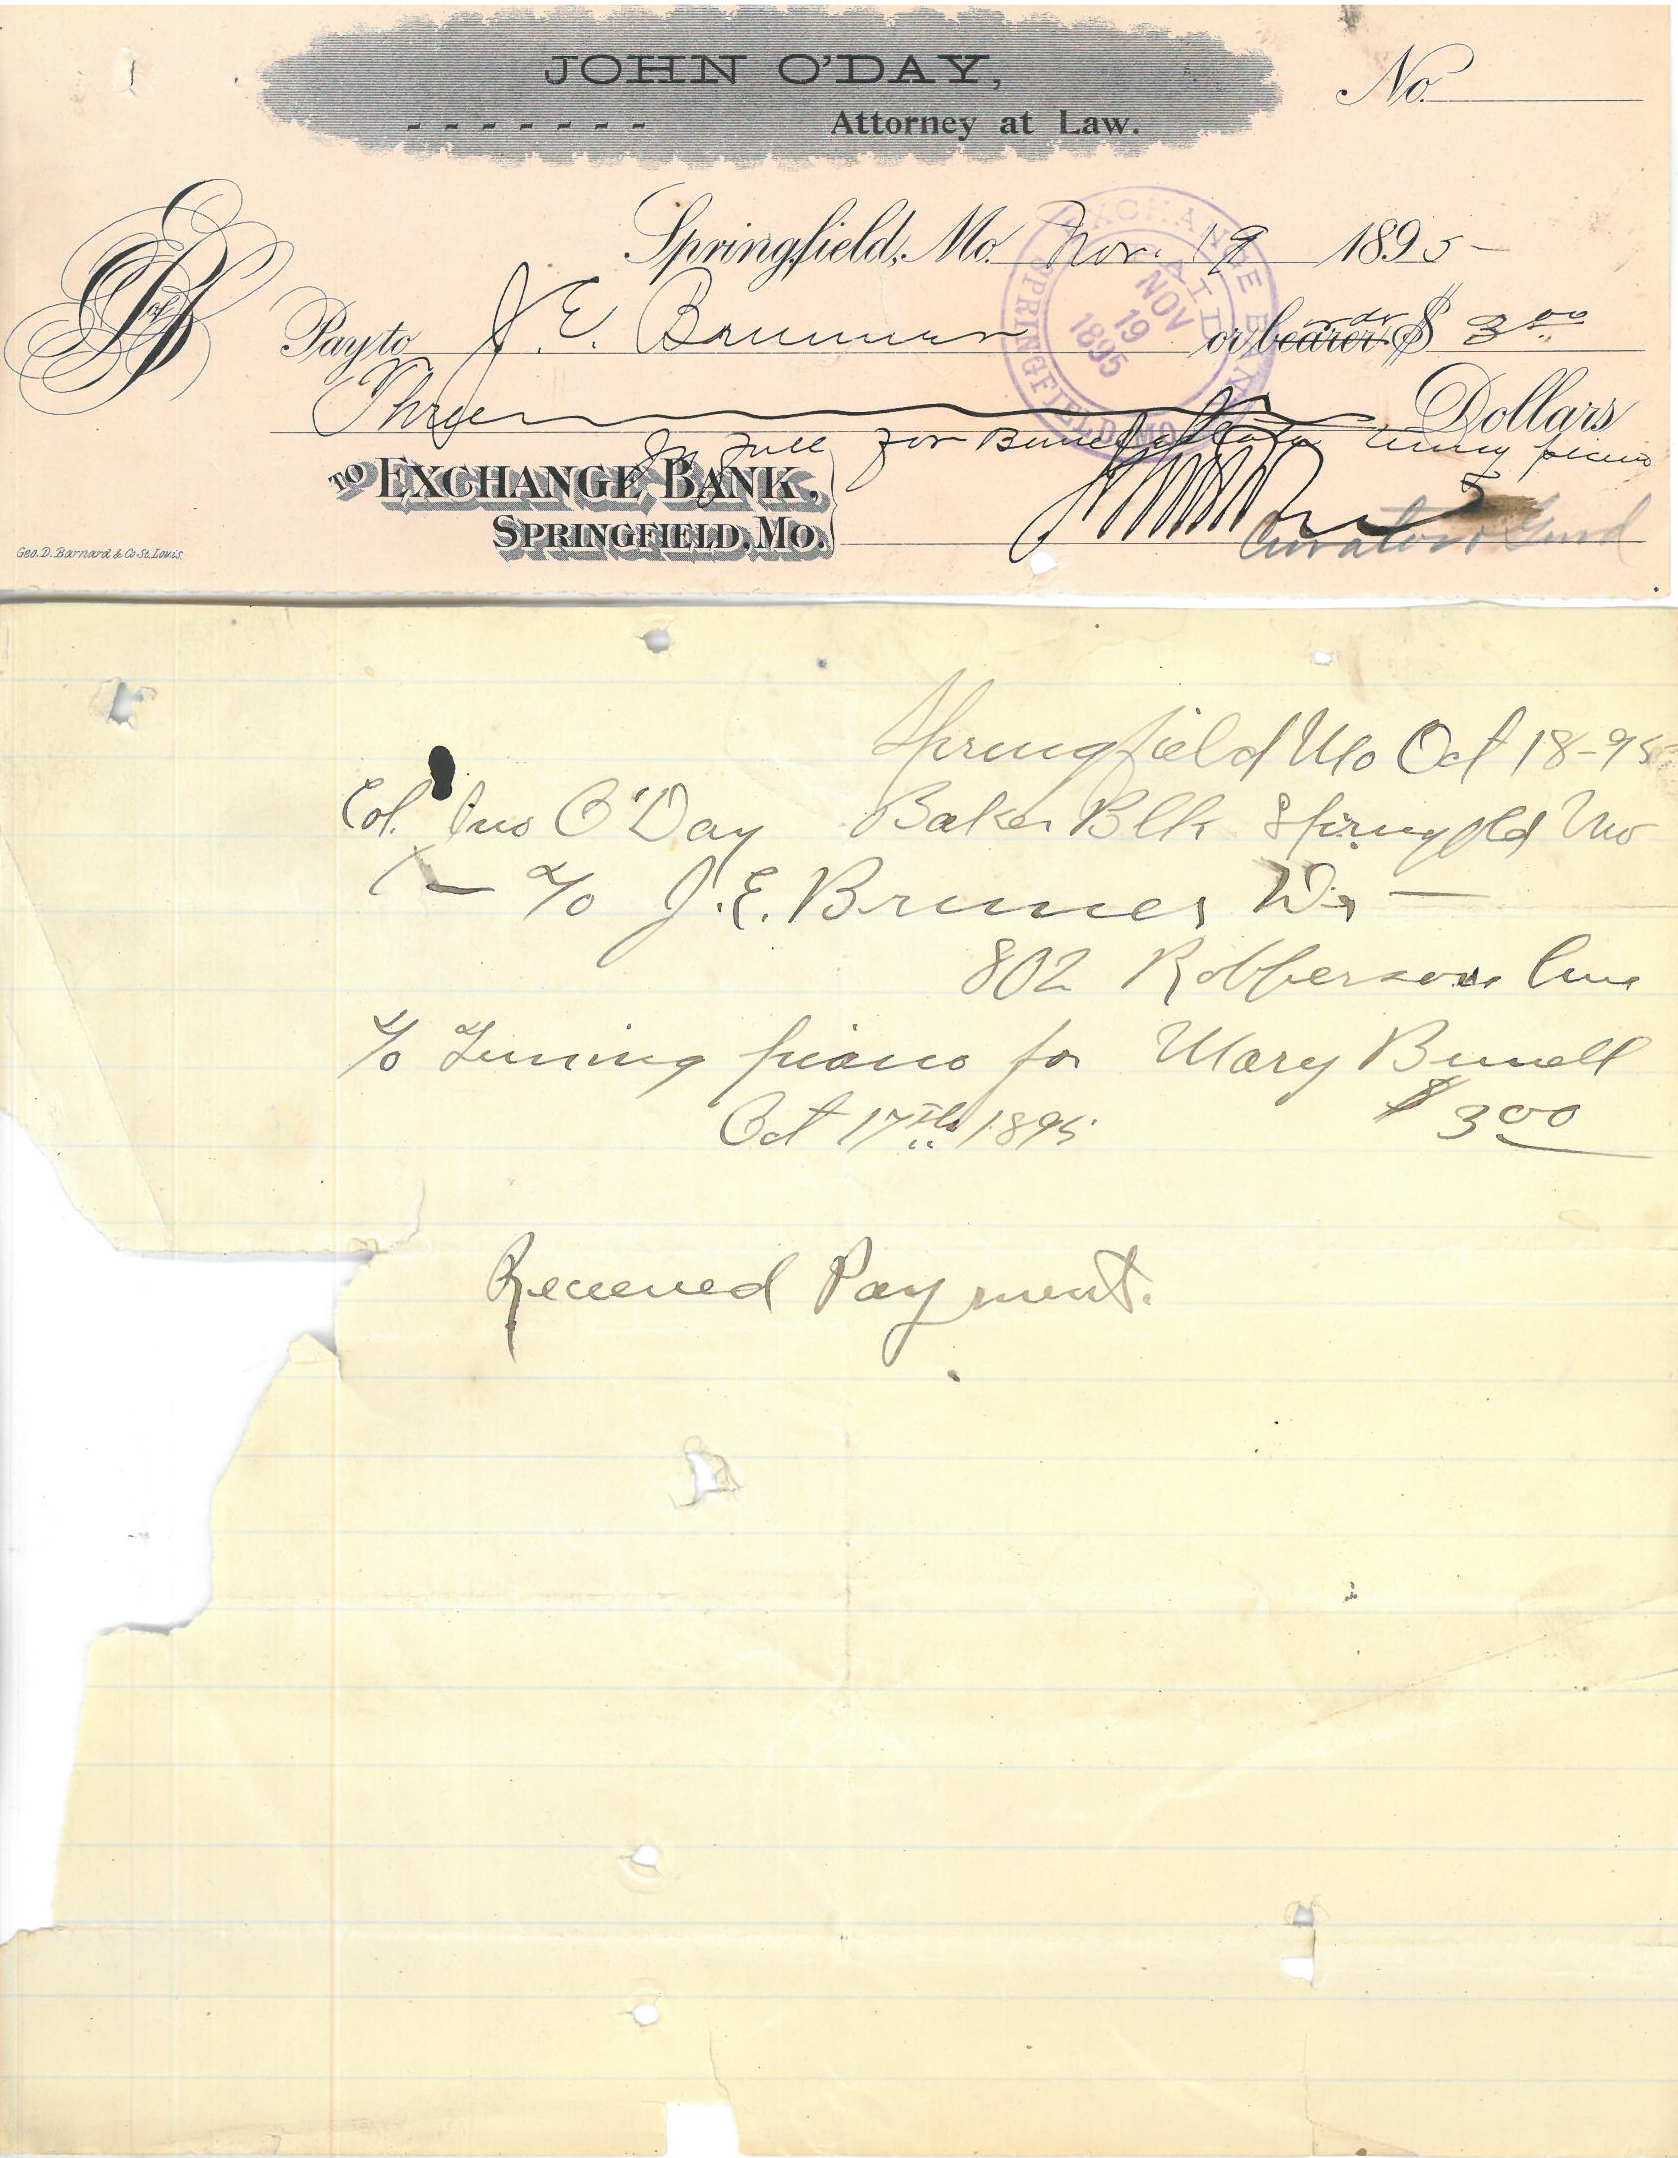 JOHN O'DAY,
Attorney at Law.
No.
Springfield, Mo. Nov. 19 1895
Pay to J. E. Bruner or bearer order $ 3.00
Three Dollars
In full for tuning piano
TO EXCHANGE BANK,
SPRINGFIELD, MO.
Geo. D. Barnard & Co St. Louis.
EXCHANGE BANK
PAID
NOV
19
1895
SPRINGFIELD, MO.
Springfield Mo Oct 18-95
Col. Jno O'Day Baker Blk Springfld Mo
To J. E. Bruner Dr
802 Robberson Ave
To Tuning piano for Mary Bunell
Oct 17th 1895 $ 3.00
Received Payment.